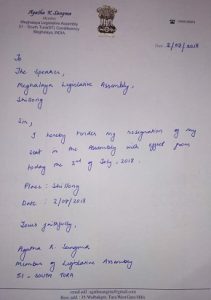 Agatha K Sangma
Member
Meghalaya Legislative Assembly
51 - South Tura(ST) Constituency
Meghalaya, INDIA
Date : 2/07/2018
To
The Speaker,
Meghalaya Legislative Assembly,
Shillong
Sir,
I hereby tender my resignation of my
seat in the Assembly with effect from
today the 2nd of July, 2018.
Place : Shillong
Date : 2/07/2018
Yours faithfully,
Agatha K. Sangma
Member of Legislative Assembly
51 - SOUTH TURA